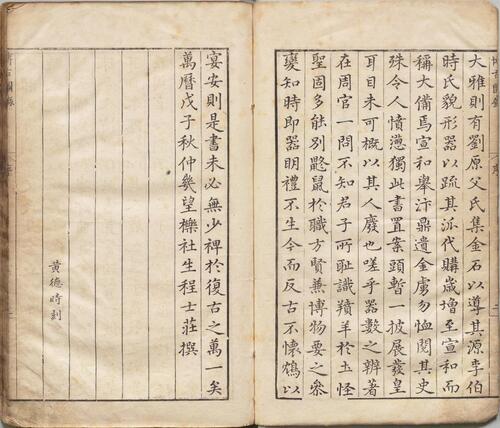 大雅則有劉原父氏集金石以導其源李伯
時氏貌形器以䟽其派代購歲增至宣和而
稱大備焉宣和舉汴鼎遺金虜勿恤閱其史
殊令人憤懣獨此書置案頭暫一披展發皇
耳目未可概以其人廢也嗟乎器數之辨著
在周官一問不知君子所耻識羵羊於土怪
聖固多能別鼮鼠於職方賢兼博物要之
知時即器明禮不生今而反古不懷鴆以
宴安則是書未必無少裨於復古之萬一矣
萬曆戊子秋仲幾望櫟社生程士莊撰
黃德時刻